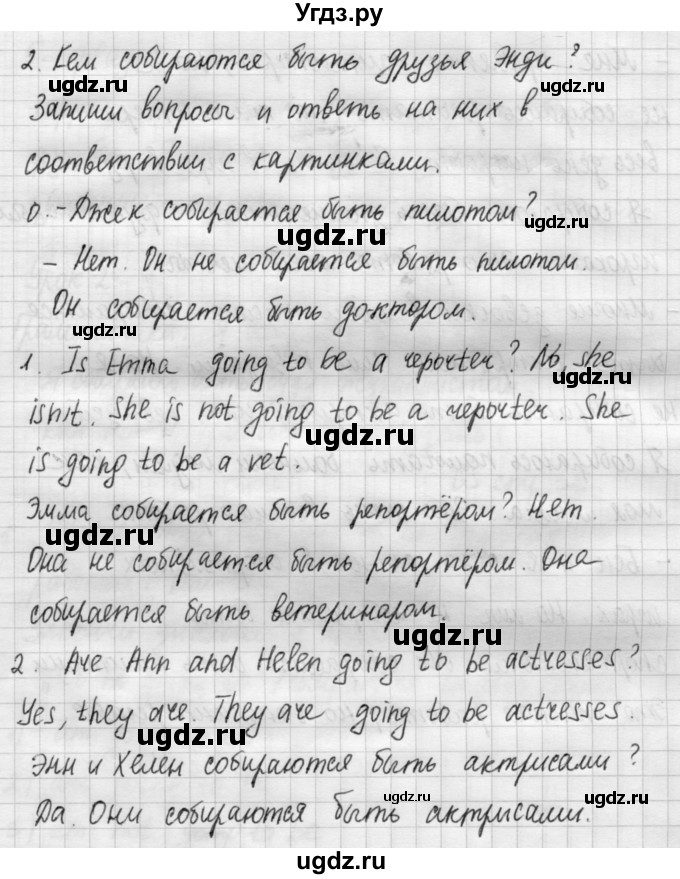 Угдз.ру
2. Кем собираются быть друзья Энди?
Запиши вопросы и ответь на них в
соответствии с картинками.
0. - Джек собирается быть пилотом?
- Нет. Он не собирается быть пилотом.
Он собирается быть доктором.
1. Is Emma going to be a reporter? No, she
isn't. She is not going to be a reporter. She
is going to be a vet.
Эмма собирается быть репортёром? Нет.
Она не собирается быть репортёром. Она
собирается быть ветеринаром.
2. Are Ann and Helen going to be actresses?
Yes, they are. They are going to be actresses.
Энн и Хелен собираются быть актрисами?
Да. Они собираются быть актрисами.
ugdz.ru